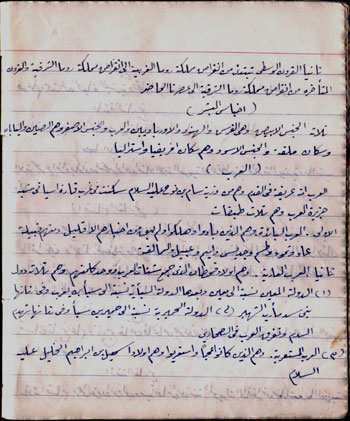 ثانيا القرون الوسطى تبتدئ من انقراض مملكة روما الغربية الى انقراض مملكة روما الشرقية والقرون
المتأخرة من انقراض مملكة روما الشرقية الى عصرنا الحاضر
( اجناس البشر )
ثلاث الجنس الابيض وهم الفرس والهنود والاوربا ويين والعرب والجنس الاصفر وهم الصين واليابان
وسكان ملقه والجنس الاسود وهم سكان افريقيا واستراليا
( العرب )
العرب امة عريقة في القدم وهم من ذرية سام بن نوح عليه السلام سكنت في غرب قارة اسيا في شبه
جزيرة العرب وهم ثلاث طبقات
الاولى العرب البائدة وهم الذين بادوا وهلكوا ولم يبق من اخبارهم الا قليل ومنهم قبيلة
عاد وثمود وطسم وجديس وعبيل والعمالقة
ثانيا العرب العاربة وهم اولاد قحطان الذي العرب وهم ثلاث دول
(١) الدولة نسبة الى معين السبأية نسبة الى سبأ
بنى سد مأرب الشهير (٢) الدولة الحميرية نسبة الى حمير بن سبأ وفي
السد وتفرق العرب في
(٣) العرب المستعربة وهم الذين كانوا عجما واستعربوا وهم اولاد اسمعيل بن ابراهيم الخليل عليه
السلام